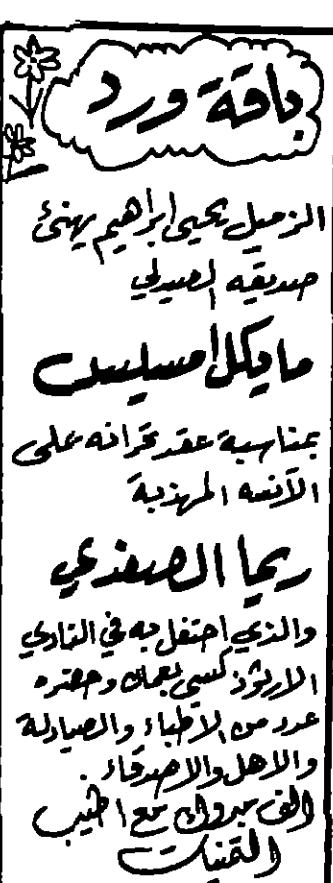 باقة ورد
الزميل يحيى ابراهيم يهنئ
صديقه الصيدلي
مايكل امسيس
بمناسبة عقد قرانه على
الآنسه المهذبة
ريما الصفدي
والذي احتفل به في النادي
الارثوذكسي بعمان وحضره
عدد من الاطباء والصيادلة
والاهل والاصدقاء.
الف مبروك مع اطيب
التمنيات